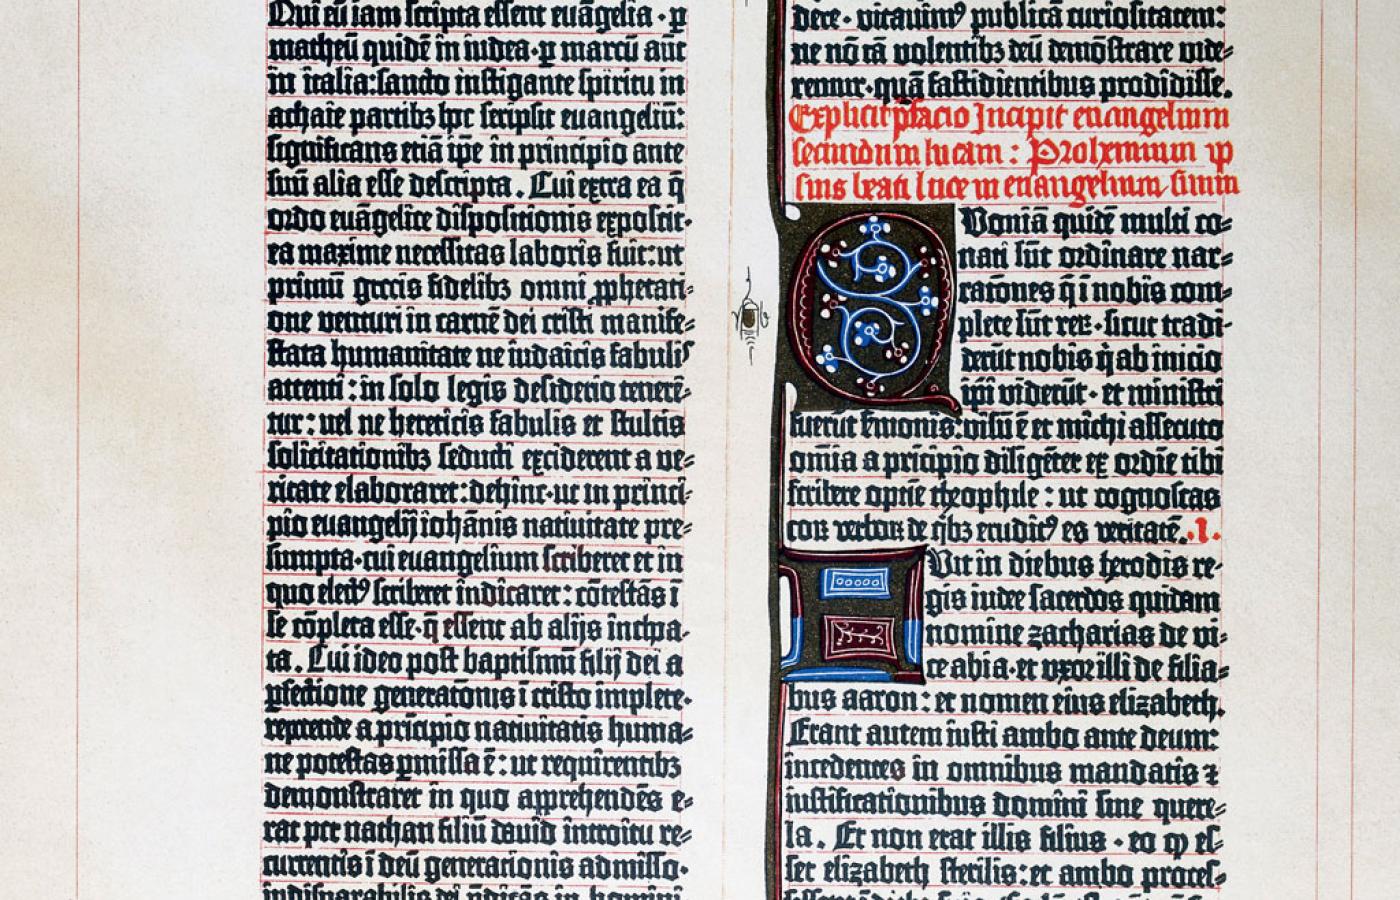 Qui cū iam scripta essent euāgelia · ꝑ
matheū quidē in iudea · ꝑ marcū aūt
in italia: sancto instigante spiritu in
achaie partibꝫ hoc scripsit euangeliū:
significans etiā ip̄e in principio ante
suū alia esse descripta. Cui extra ea q̄
ordo euāgelice dispositionis exposcit·
ea maxime necessitas laboris fuit: ut
primū grecis fidelibꝫ omni ꝓphetati-
one venturi in carnē dei cristi manife-
stata humanitate ne iudaicis fabulis
attenti: in solo legis desiderio tenerē-
tur: uel ne hereticis fabulis et stultis
solicitationibꝫ seducti exciderent a ve-
ritate elaboraret: dehinc · ut in princi-
pio euangelij iohānis natiuitate pre-
sumpta · cui euangelium scriberet et in
quo electꝰ scriberet indicaret: cōtestās ī
se cōpleta esse · q̄ essent ab alijs inchoa-
ta. Cui ideo post baptismū filij dei a
ꝑfectione generatōnis ī cristo implete·
repetende a prīcipio natiuitatis huma-
ne potestas ꝑmissa ē: ut requirentibꝫ
demonstraret in quo apprehendēs e-
rat per nathan filiū dauid introitu re-
currentis ī deū generationis admisso·
indisparabilis dei
dere · vitauimꝰ publicā curiositatem:
ne nō tā volentibꝫ deū demōstrare vide-
remur · quā fastidientibus prodidisse.
Explicit p̄facio Incipit euangelium
secundum lucam: Prohemium ip
sius beati luce in euangelium suum
QVoniā quidē multi co-
nati sūt ordinare nar-
ratōnes q̄ ī nobis com-
plete sūt reꝝ · sicut tradi-
derūt nobis q̄ ab inicio
ip̄i viderūt · et ministri
fuerūt s̄monis: visū ē et michi assecuto
om̄ia a prīcipio diligēter ex ordīe tibi
scribere optīe theophile: ut cognoscas
eoꝝ verboꝝ de q̄bꝫ eruditꝰ es veritatē. .I.
FVit in diebus herodis re-
gis iudee sacerdos quidam
nomine zacharias de vi-
ce abia · et uxor illi de filia-
bus aaron: et nomen eius elizabeth.
Erant autem iusti ambo ante deum:
incedentes in omnibus mandatis ⁊
iustificationibus domini sine quere-
la. Et non erat illis filius · eo ꝙ es-
set elizabeth sterilis: et ambo proces-